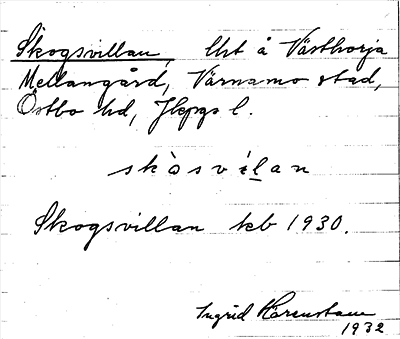 Skogsvillan, lht å Västhorja
Mellangård, Värnamo stad,
Östbo hd, Jkpgs l.
skòsvílan
Skogsvillan kb 1930.
Ingrid
1932